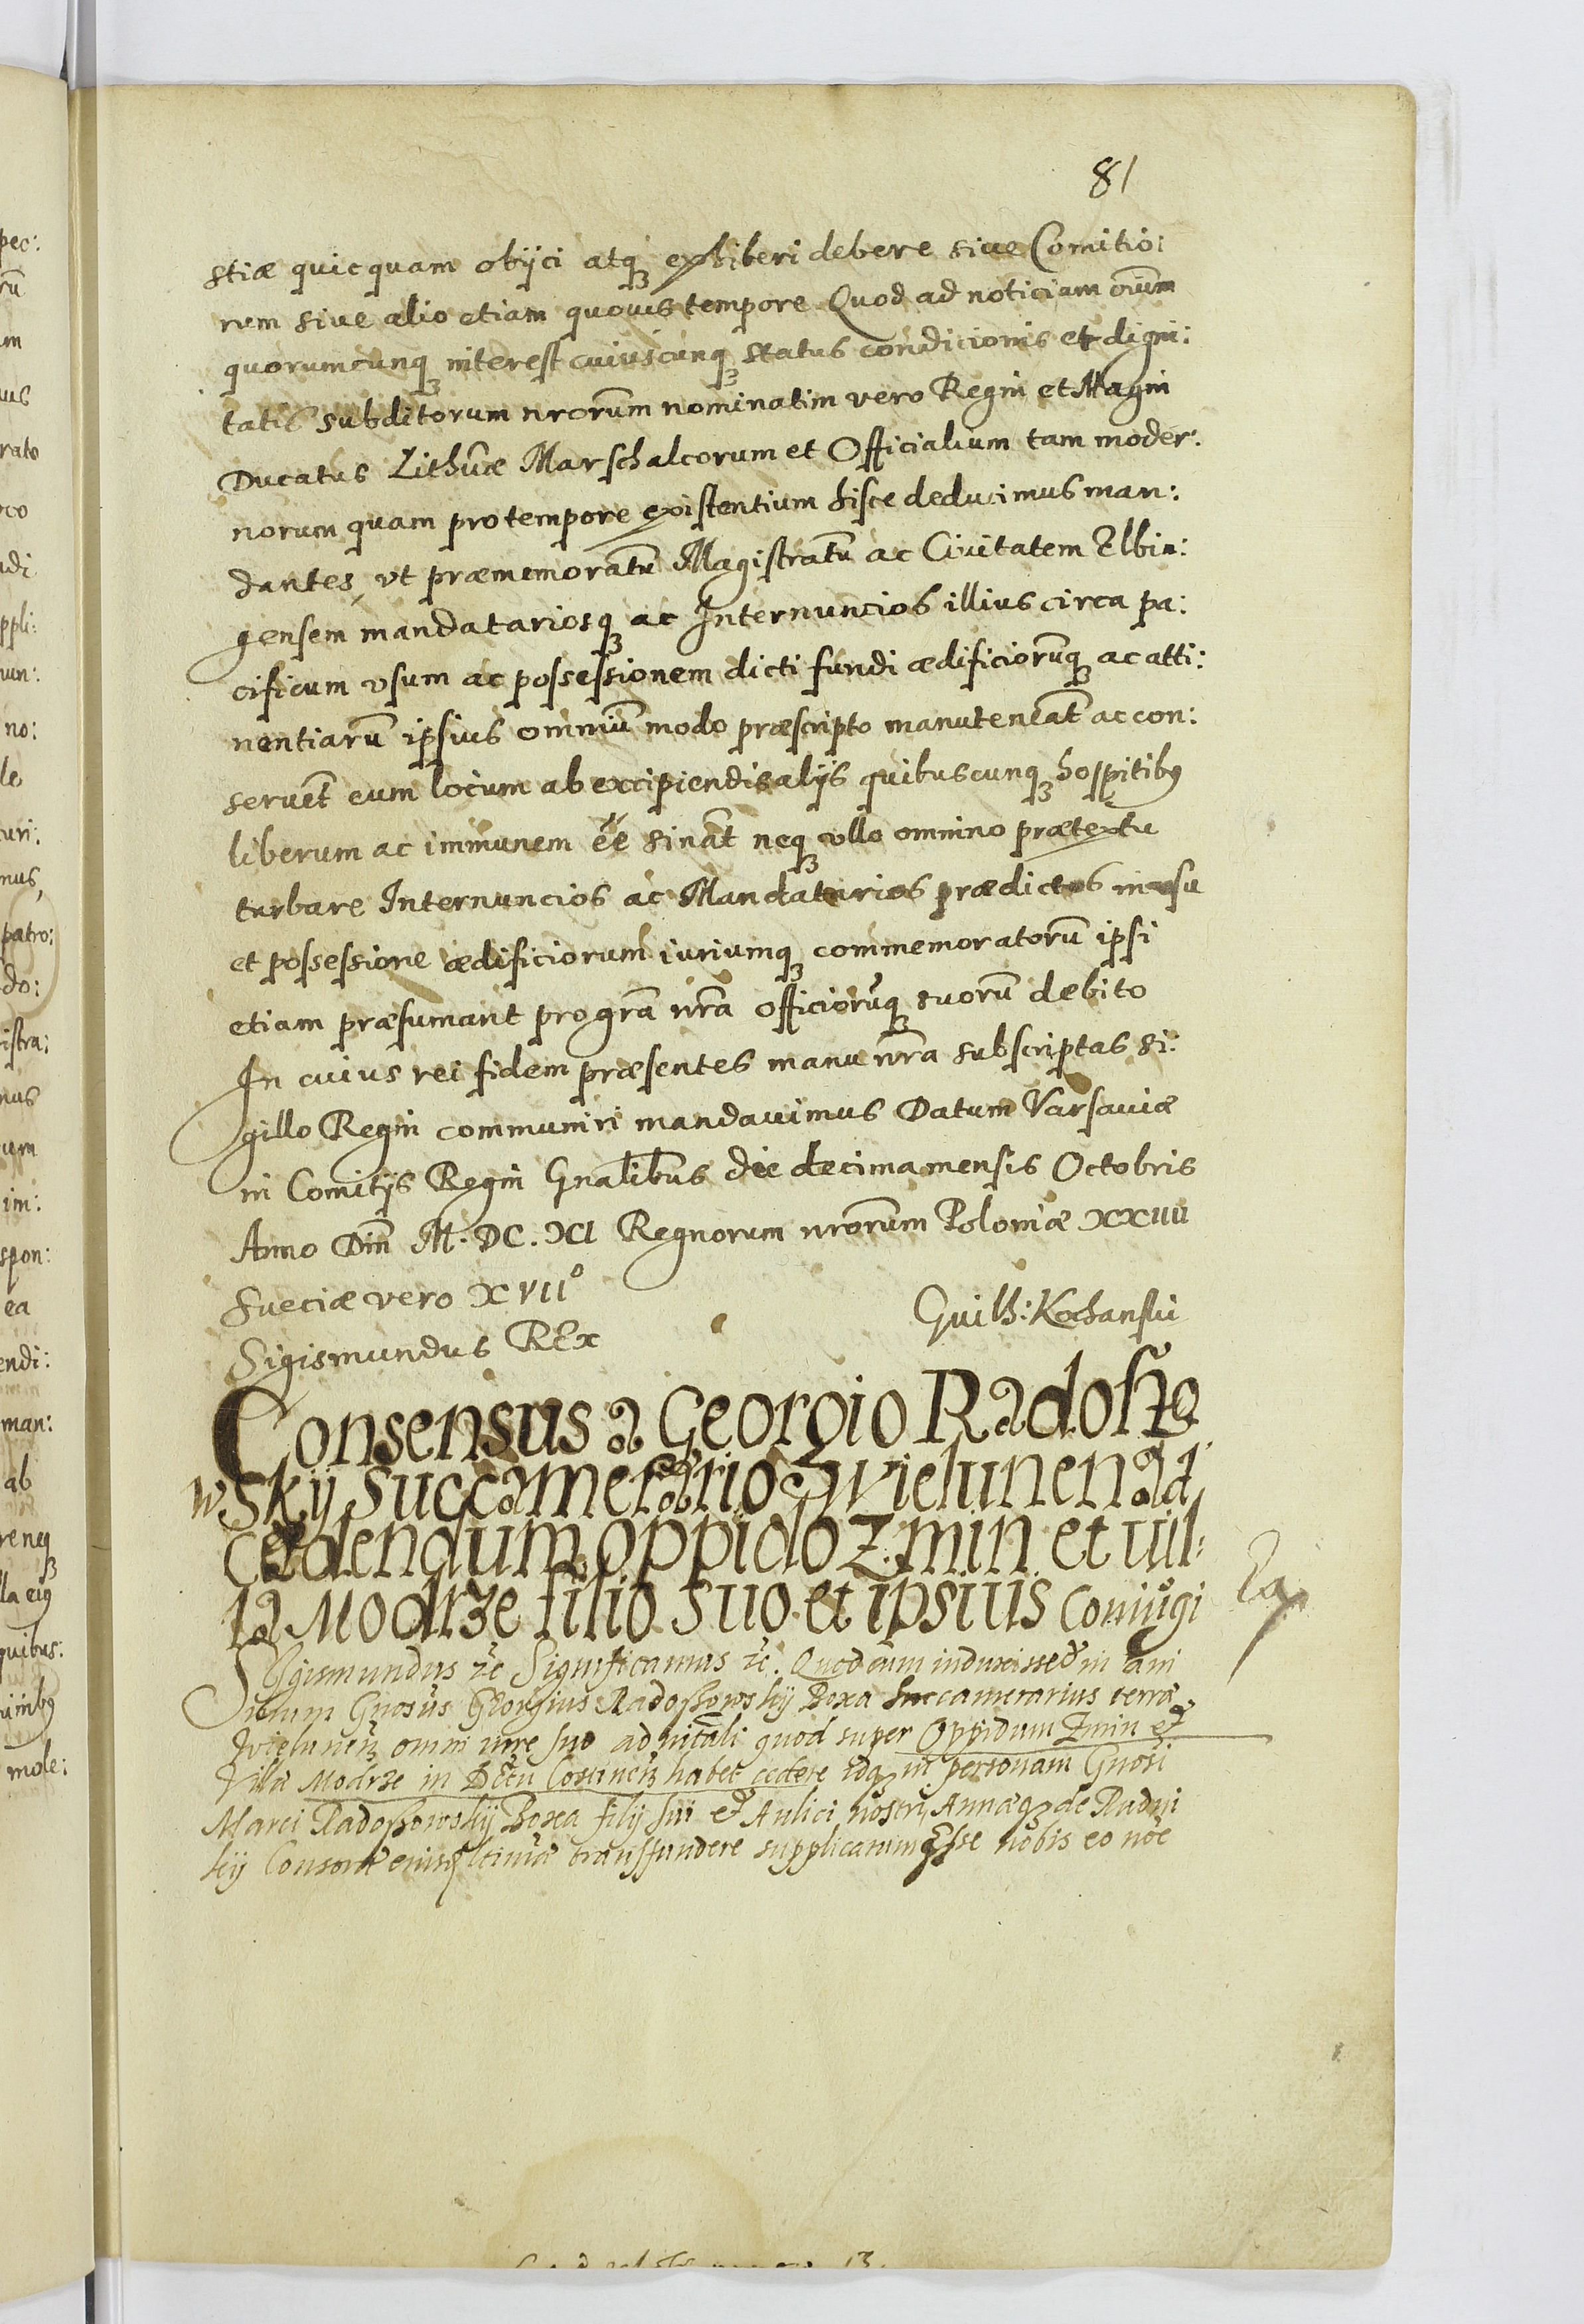 81
stiæ quicquam obijci atq exhiberi debere siue Comitio:
rum siue alio etiam quouis tempore Quod ad noticiam oium
quorumcunq interest cuiuscunq status condicionis et digni:
tatis subditorum nrorum nominatim vero Regni et Magni
Ducatus Lithuæ Marschalcorum et Officialium tam moder:
norum quam pro tempore existentium hisce deducimus man:
dantes, vt præmemoratu Magistratu ac Ciuitatem Elbin:
gensem mandatariosq ac Internuncios illius circa pa:
cificum vsum ac possessionem dicti fundi ædificiorumq ac atti:
nentiaru ipsius omniu modo præscripto manuteneat ac con:
seruet eum locum ab excipiendis alijs quibuscunq hospitibq
liberum ac immunem ee sinat neq vllo omnino prætextu
turbare Internuncios ac Mandatarios prædictos in vsu
et possessione ædificiorum iuriumq commemoratoru ipsi
etiam præsumant pro gra nra officioruq suoru debito
In cuius rei fidem præsentes manu nra subscriptas si:
gillo Regni communiri mandauimus Datum Varsauiæ
in Comitijs Regni Gnalibus die decima mensis Octobris
Anno Dni M. DC. XI Regnorum nrorum Poloniæ XXIIII
Sueciæ vero XVII°
Guilh: Kochanski
Sigismundus REx
Consensus a Georgio Radoszo
wskij succamerario Wielunen ad
cedendum oppido Zmin et uil:
la Modrze filio suo et ipsius Coniugi
Sigismundus etc Significamus etc. Quod cum induxisset in ani
mum Gnosus Georgius Radoszowskij Boxa Succamerarius terræ
Wielunen omni iure suo aduitali quod super Oppidum Zmin et
Villa Modrze in Dctu Costinen habet cedere idq in personam Gnosi
Marci Radoszowskij Boxa filij sui et Aulici nostri, Annæq de
kij Consortis eius ltimæ transfundere supplicatumq esse nobis eo noe